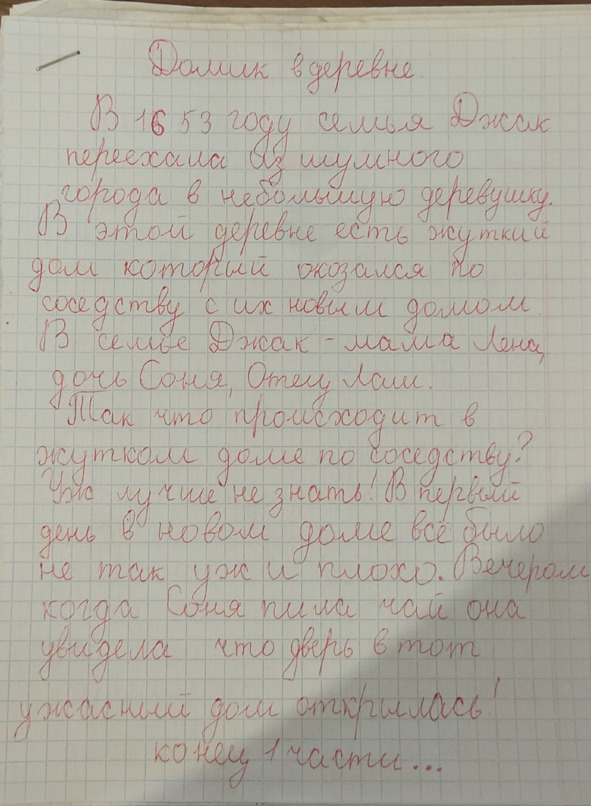 Домик в деревне.
В 1653 году семья Джак
переехала из шумного
города в небольшую деревушку.
В этой деревне есть жуткий
дом который оказался по
соседству с их новым домом
В семье Джак - мама Лена,
дочь Соня, Отец Лаш.
Так что происходит в
жутком доме по соседству?
Уж лучше не знать! В первый
день в новом доме всё было
не так уж и плохо. Вечером
когда Соня пила чай она
увидела что дверь в тот
ужасный дом открылась!
конец 1 части...